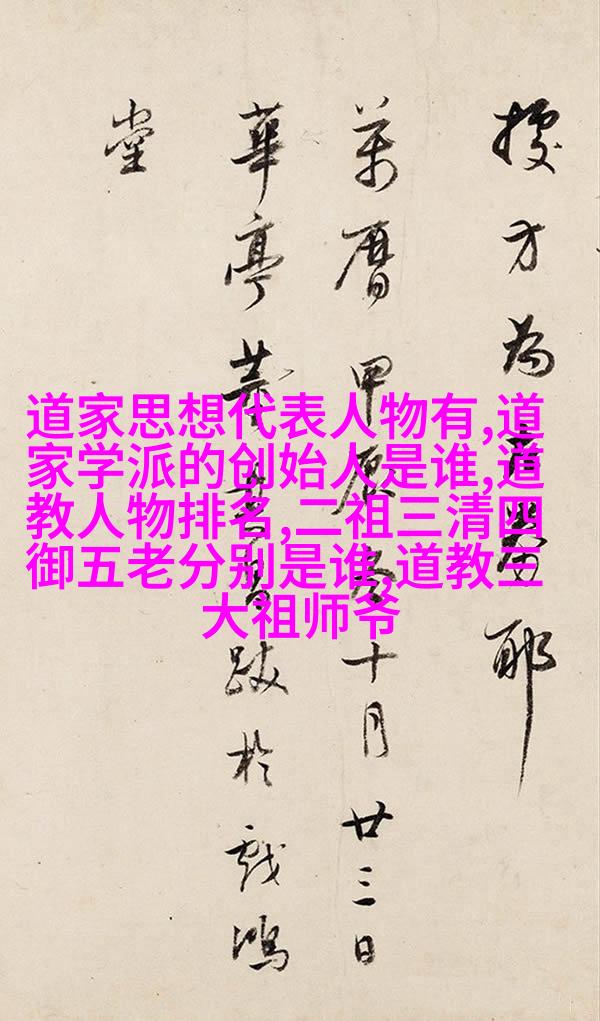 方為耶
萬曆甲辰十月廿三日
華亭董其昌書跋於戲鴻
堂
道家思想代表人物有,道
家学派的创始人是谁,道
教人物排名,二祖三清四
御五老分别是谁,道教三
大祖师爷